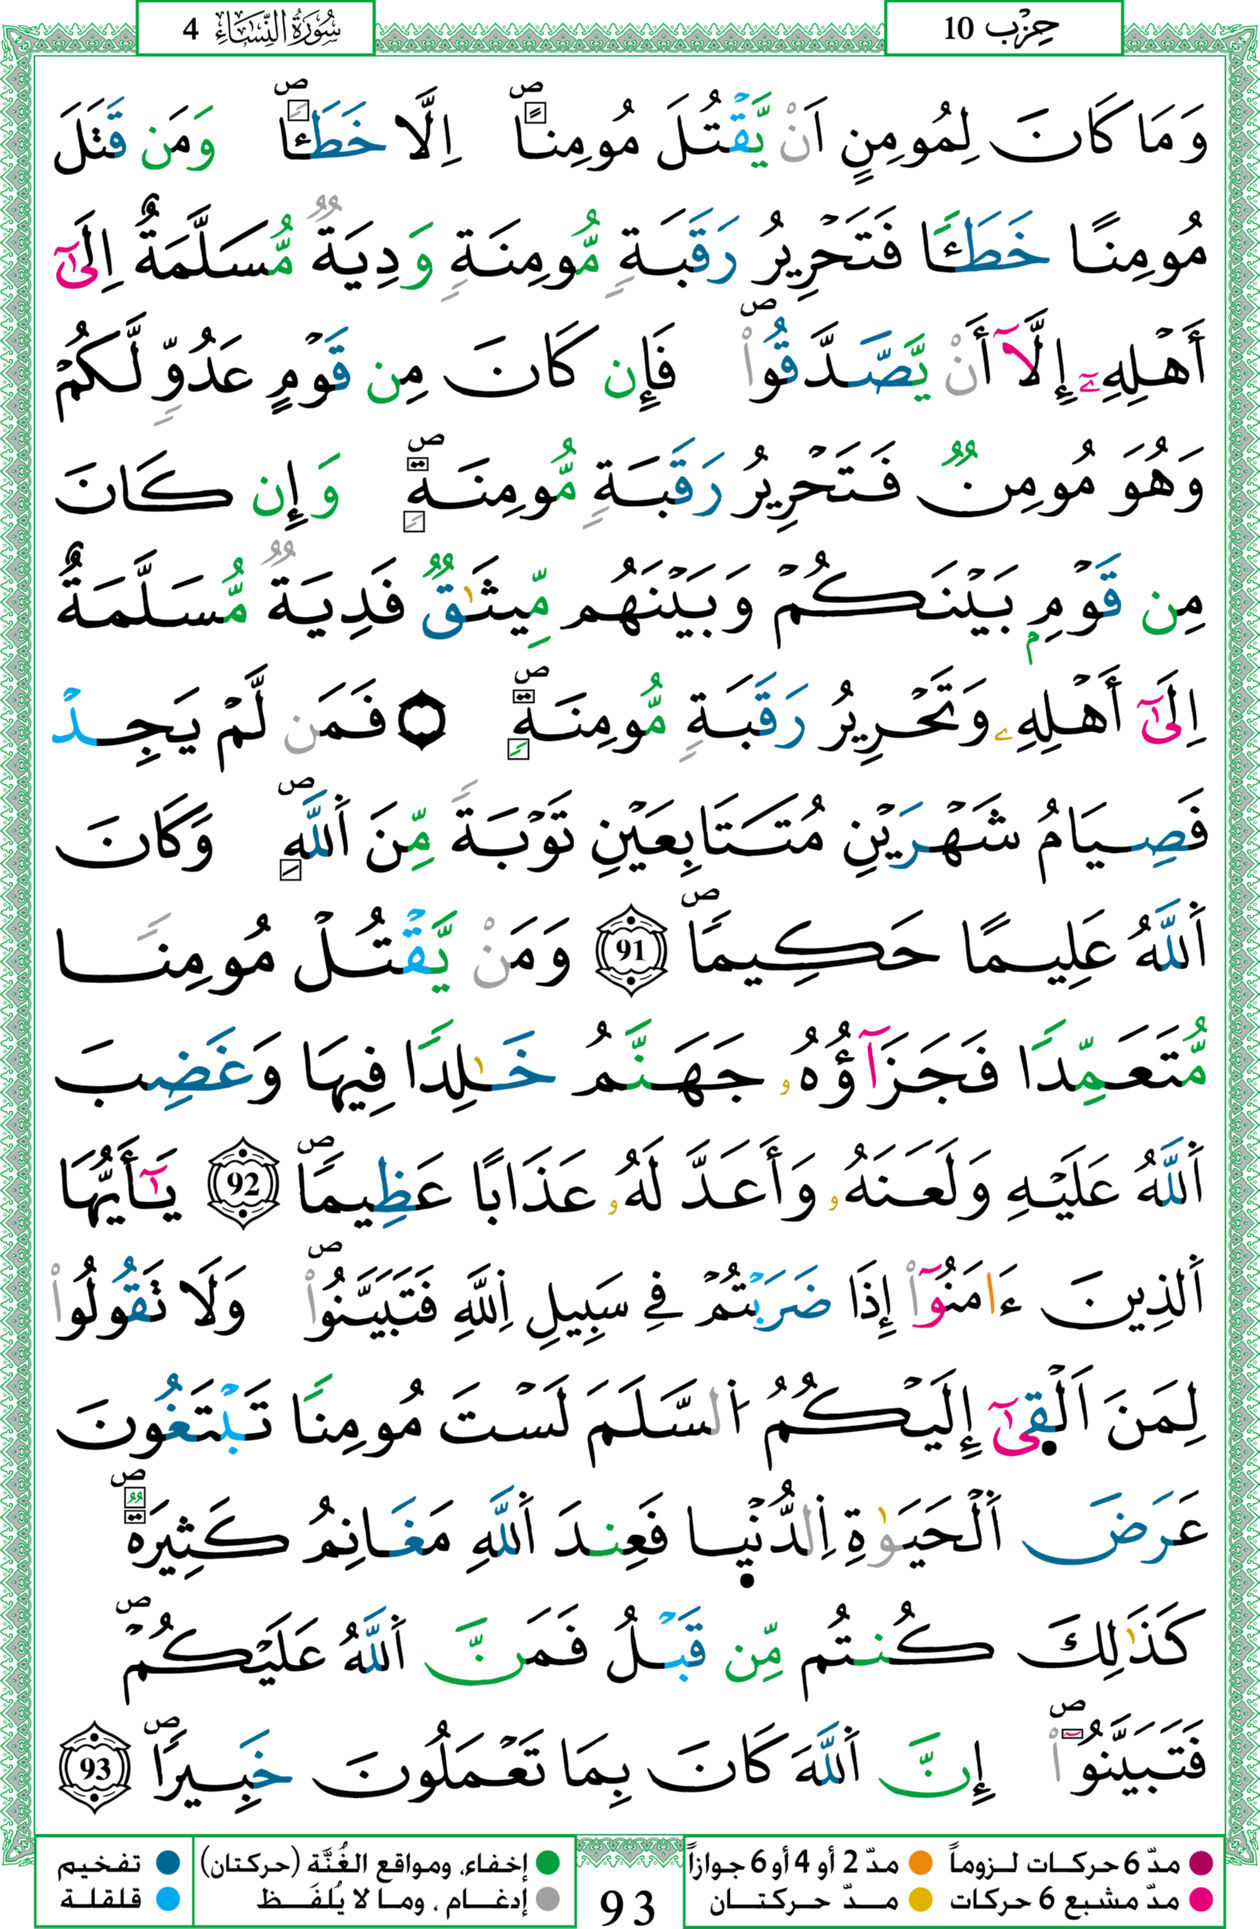 سُورَةُ النِّسَاءِ 4
حِزْب 10
وَمَا كَانَ لِمُومِنٍ اَنْ يَّقْتُلَ مُومِناً اِلَّا خَطَـٔاً وَمَن قَتَلَ
مُومِنًا خَطَـًٔا فَتَحْرِيرُ رَقَبَةٍ مُّومِنَةٍ وَدِيَةٌ مُّسَلَّمَةٌ اِلَىٰٓ
أَهْلِهِۦٓ إِلَّآ أَنْ يَّصَّدَّقُواْ فَإِن كَانَ مِن قَوْمٍ عَدُوٍّ لَّكُمْ
وَهُوَ مُومِنٌ فَتَحْرِيرُ رَقَبَةٍ مُّومِنَةٍ وَإِن كَانَ
مِن قَوْمِۭ بَيْنَكُمْ وَبَيْنَهُم مِّيثَٰقٌ فَدِيَةٌ مُّسَلَّمَةٌ
اِلَىٰٓ أَهْلِهِۦ وَتَحْرِيرُ رَقَبَةٍ مُّومِنَةٍ فَمَن لَّمْ يَجِدْ
فَصِيَامُ شَهْرَيْنِ مُتَتَابِعَيْنِ تَوْبَةً مِّنَ اَللَّهِ وَكَانَ
اَللَّهُ عَلِيمًا حَكِيمًا 91 وَمَنْ يَّقْتُلْ مُومِنًا
مُّتَعَمِّدًا فَجَزَآؤُهُۥ جَهَنَّمُ خَٰلِدًا فِيهَا وَغَضِبَ
اَللَّهُ عَلَيْهِ وَلَعَنَهُۥ وَأَعَدَّ لَهُۥ عَذَابًا عَظِيمًا 92 يَٰٓأَيُّهَا
اَلذِينَ ءَامَنُوٓاْ إِذَا ضَرَبْتُمْ فِے سَبِيلِ اِللَّهِ فَتَبَيَّنُواْ وَلَا تَقُولُواْ
لِمَنَ اَلْقِىٰٓ إِلَيْكُمُ اُلسَّلَمَ لَسْتَ مُومِنًا تَبْتَغُونَ
عَرَضَ اَلْحَيَوٰةِ اِلدُّنْيِا فَعِندَ اَللَّهِ مَغَانِمُ كَثِيرَةٌ
كَذَٰلِكَ كُنتُم مِّن قَبْلُ فَمَنَّ اَللَّهُ عَلَيْكُمْ
فَتَبَيَّنُوٓاْ إِنَّ اَللَّهَ كَانَ بِمَا تَعْمَلُونَ خَبِيرًا 93
مدّ 6 حركات لـزوماً
مدّ 2 أو 4 أو 6 جوازاً
مدّ مشبع 6 حركات
مـدّ حـركتــان
93
إخفاء، ومواقع الغُنَّة (حركتان)
إدغـام ، ومـا لا يُلفَـظ
تفخيم
قلقلة